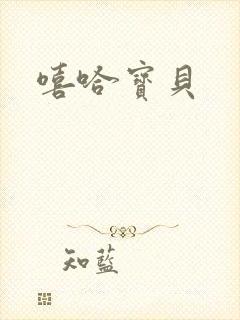 嘻哈寶貝
知藍